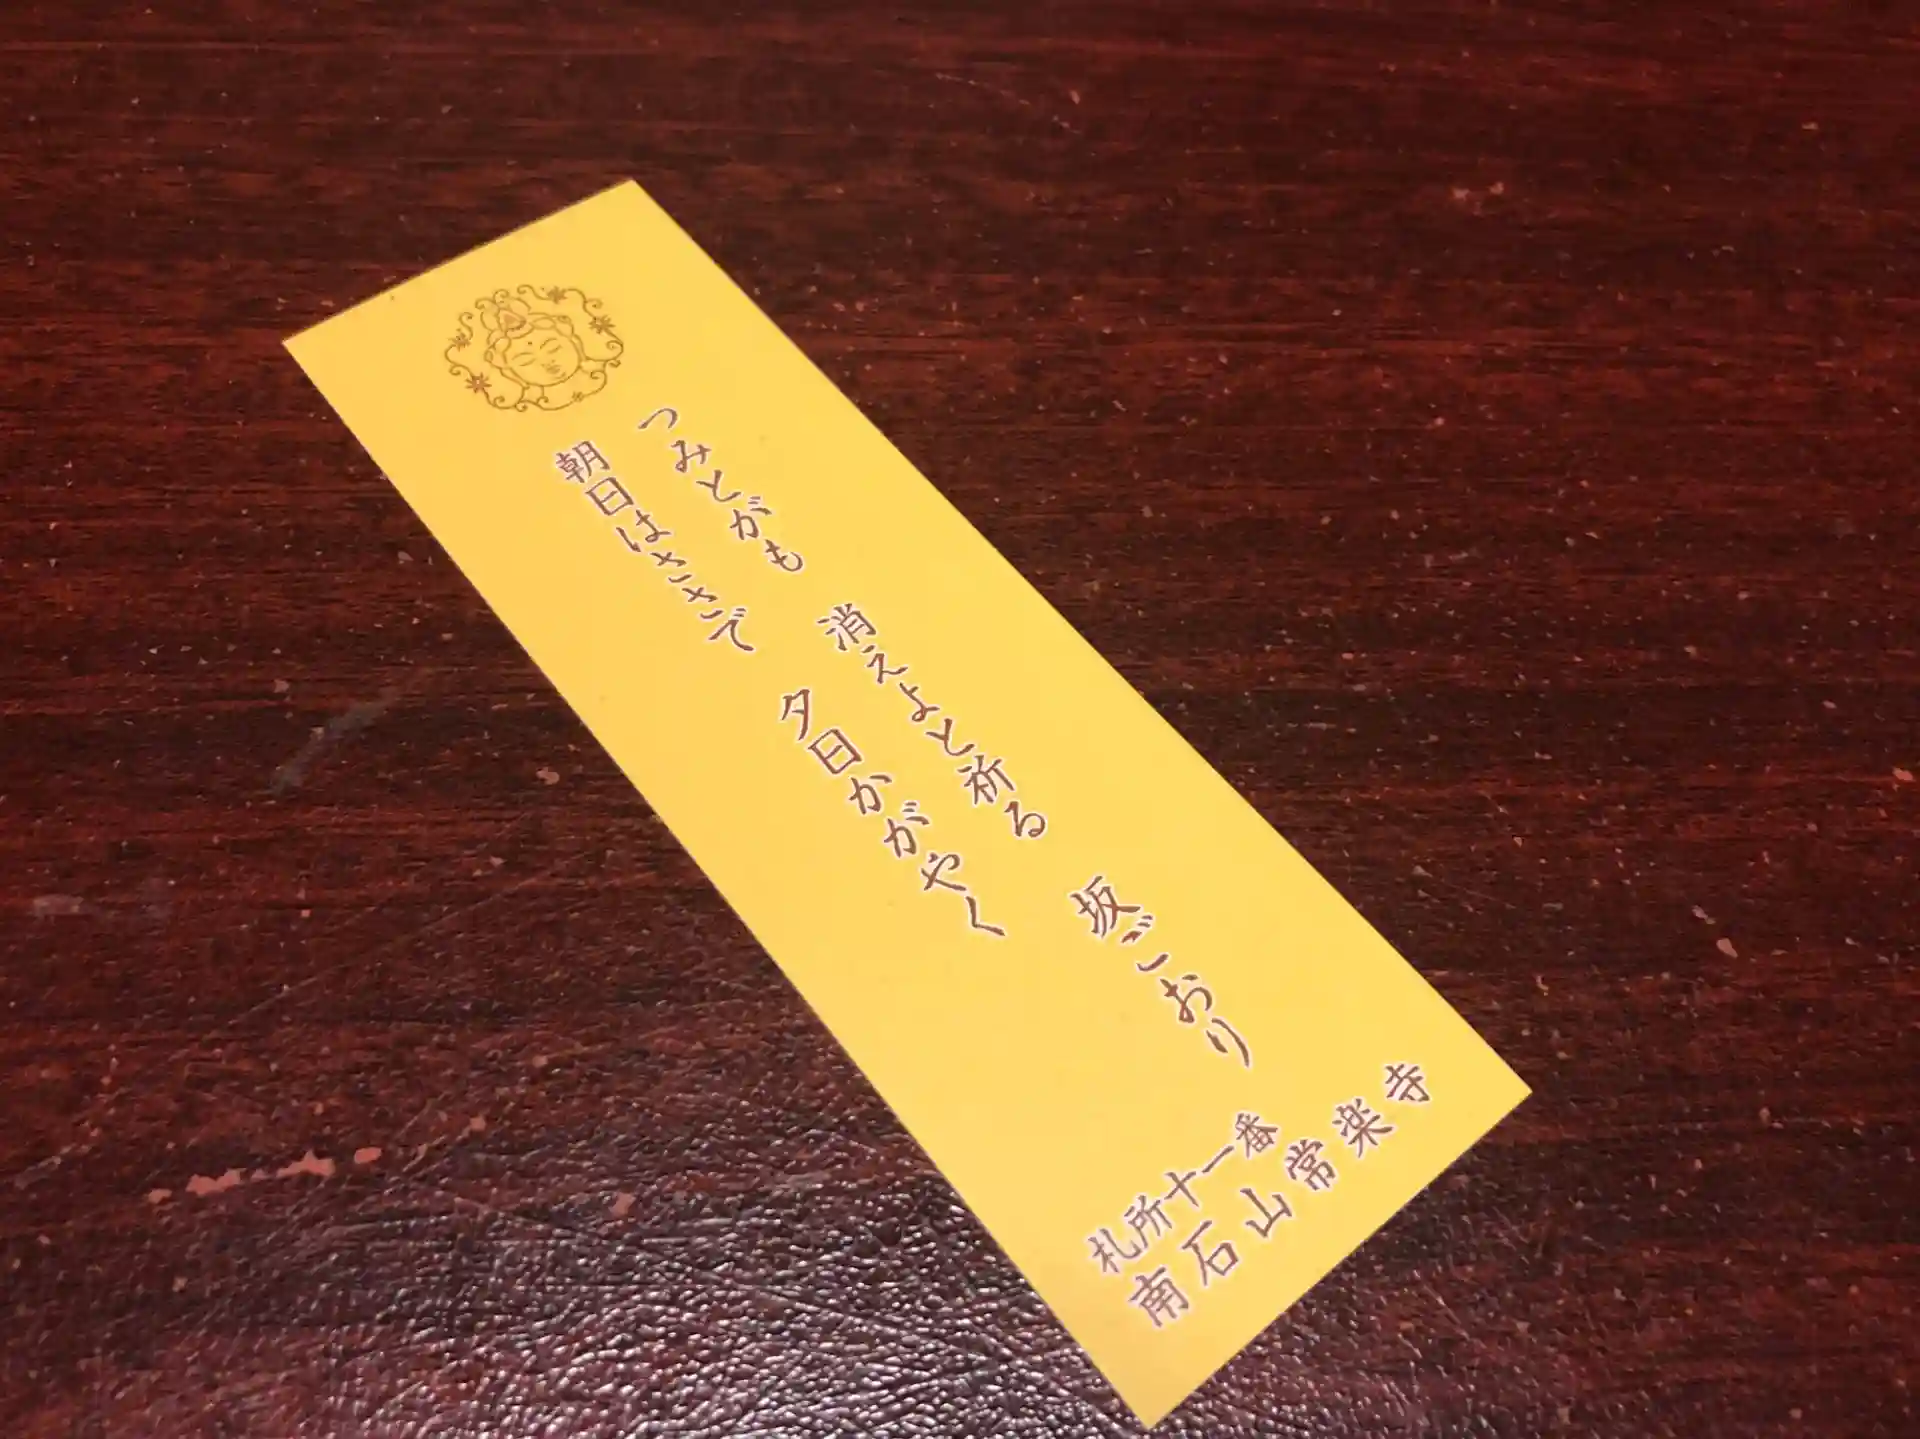 つみとがも 消えよと祈る 坂ごおり
朝日はささで 夕日かがやく
札所十一番
南石山常楽寺